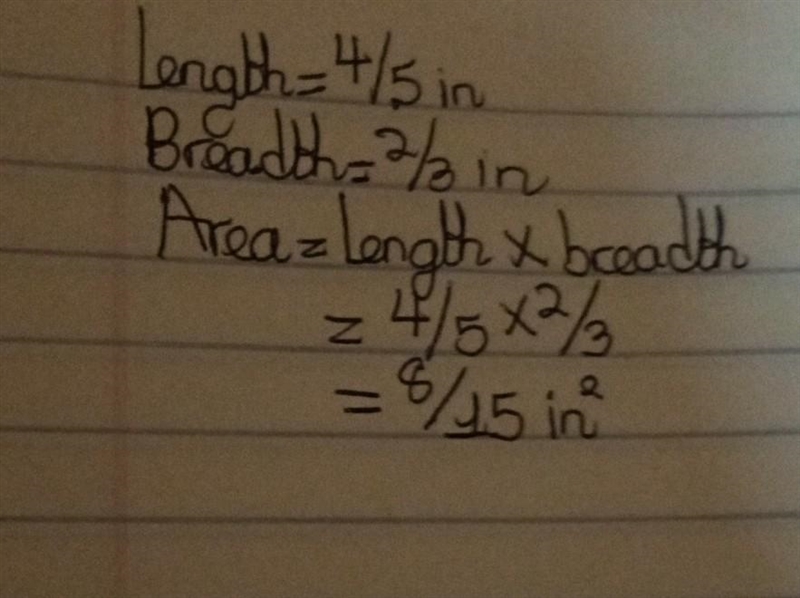 Length = 4/5 in
Breadth = 2/3 in
Area = length × breadth
= 4/5 × 2/3
= 8/15 in²